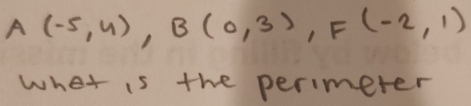 A (-5,4), B (0,3), F (-2,1)
what is the perimeter